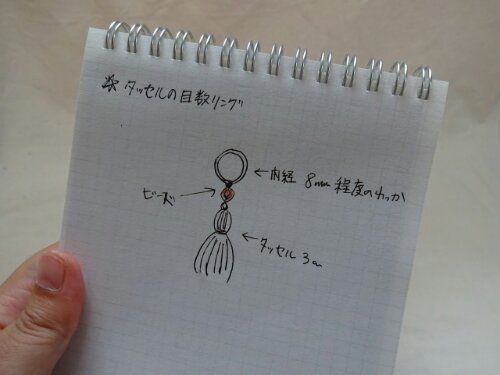 ※ タッセルの目数リング
←内経 8mm 程度のわっか
ビーズ→
←タッセル 3cm